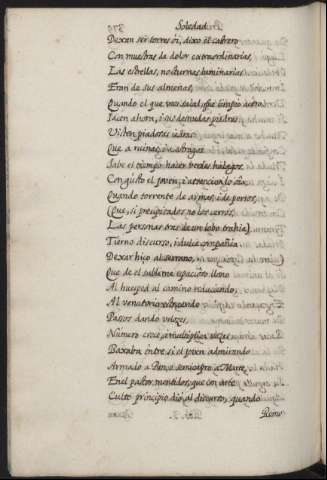 Soledad
Dexan ser torres oi, dixo el cabrero
Con muestras de dolor extraordinarias,
Las estrellas, nocturnas luminarias
Eran de sus almenas,
Quando el que ves saial, fue limpio azero.
Iacen ahora, i sus desnudas piedras
Visten piadosas iedras:
Que a ruinas, i a estragos
Sabe el tiempo hacer verdes halagos.
Con gusto el joven, i atencion le oia
Quando torrente de armas, i de perros,
(Que, si precipitados no los cerros,
Las personas tras de un lobo trahia)
Tierno discurso, i dulce compañia
Dexar hiço al serrano,
Que de el sublime espacioso llano
Al huesped al camino reduciendo,
Al venatorio estruendo
Passos dando velozes,
Numero crece, i multiplica vozes.
Baxaba entre si el joven admirando
Armado a Pan, o semicapro a Marte,
En el pastor mentidos, que con arte
Culto principio dio al discurso, quando
Remo